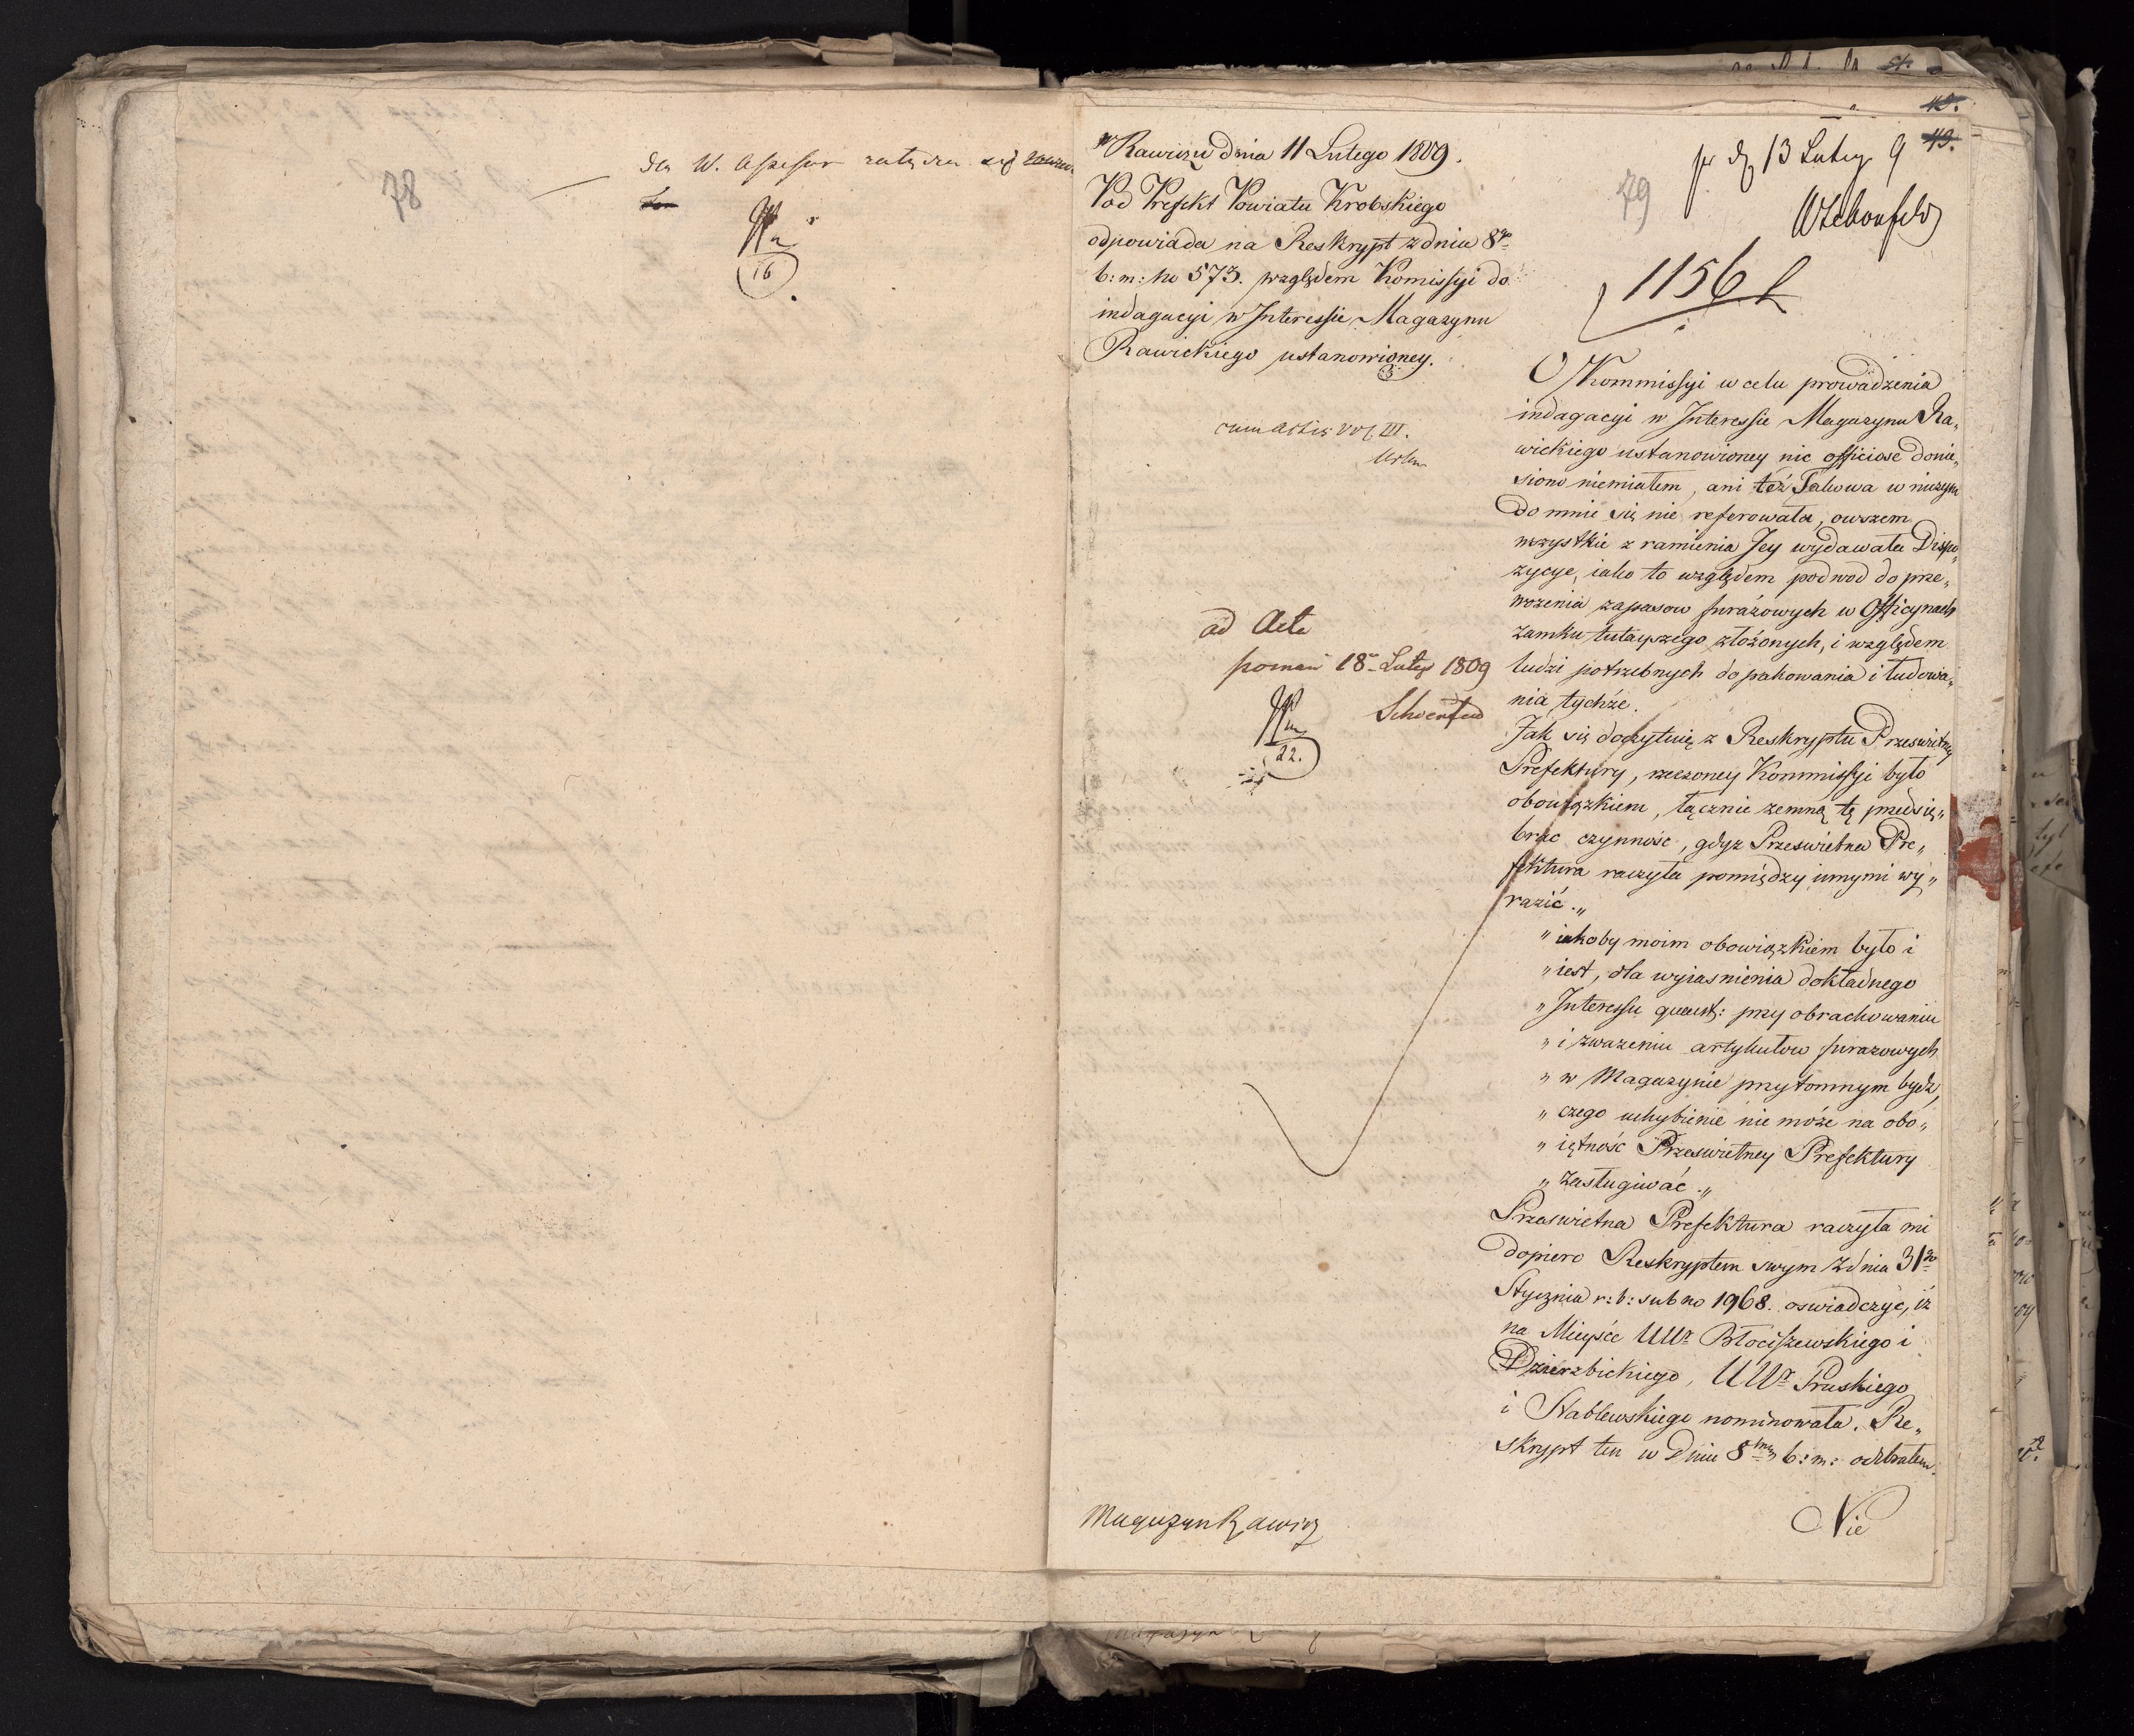 78
W. Assessor
16
w Rawiczu dnia 11 Lutego 1809.
Pod Prefekt Powiatu Krobskiego
odpowiada na Reskrypt z dnia 8go
b: m: no 573. względem Komissyi do
indagacyi w Interessie Magazynu
Rawickiego ustanowioney.
cum actis vol. III.
ad Acta
poznań 18 Luteg 1809
Schoenfeld
22.
49.
13 Luteg 9
79
1156
O Kommissyi w celu prowadzenia
indagacyi w Interessie Magazynu Ra„
wickiego ustanowioney nic officiose donie„
siono niemiałem, ani też Takowa w niczym
do mnie się nie referowała, owszem
wszystkie z ramienia Jey wydawała Dispo„
zycye, iako to względem podwod do prze„
wozenia zapasow furażowych w Officynach
Zamku tutayszego złożonych, i względem
ludzi potrzebnych do pakowania i ładowa„
nia tychże.
Jak się doczytuię z Reskryptu Przeswietney
Prefektury, rzeczoney Kommissyi było
obowiązkiem, łącznie zemną tę przedsię„
brac czynność, gdyz Przeswietna Pre„
fektura raczyła pomiędzy innymi wy„
razić.„
„ iakoby moim obowiązkiem było i
„ iest, dla wyiasnienia dokładnego
„ Interessu quaest: przy obrachowaniu
„ i zwazeniu artykułow furazowych
„ w Magazynie przytomnym bydz,
„ czego uchybienie nie może na obo„
„ iętność Przeswietney Prefektury
„ zasługiwać.„
Przeswietna Prefektura raczyła mi
dopiero Reskryptem swym z dnia 31go
Stycznia r: b: sub no 1968. oswiadczyć, iż
na Mieysce UUr Błociszewskiego i
Dzierzbickiego, UUr Pruskiego
i Stablewskiego nominowała. Re„
skrypt ten w Dniu 8mym b: m: odebrałem.
Nie
Magazyn Rawicz